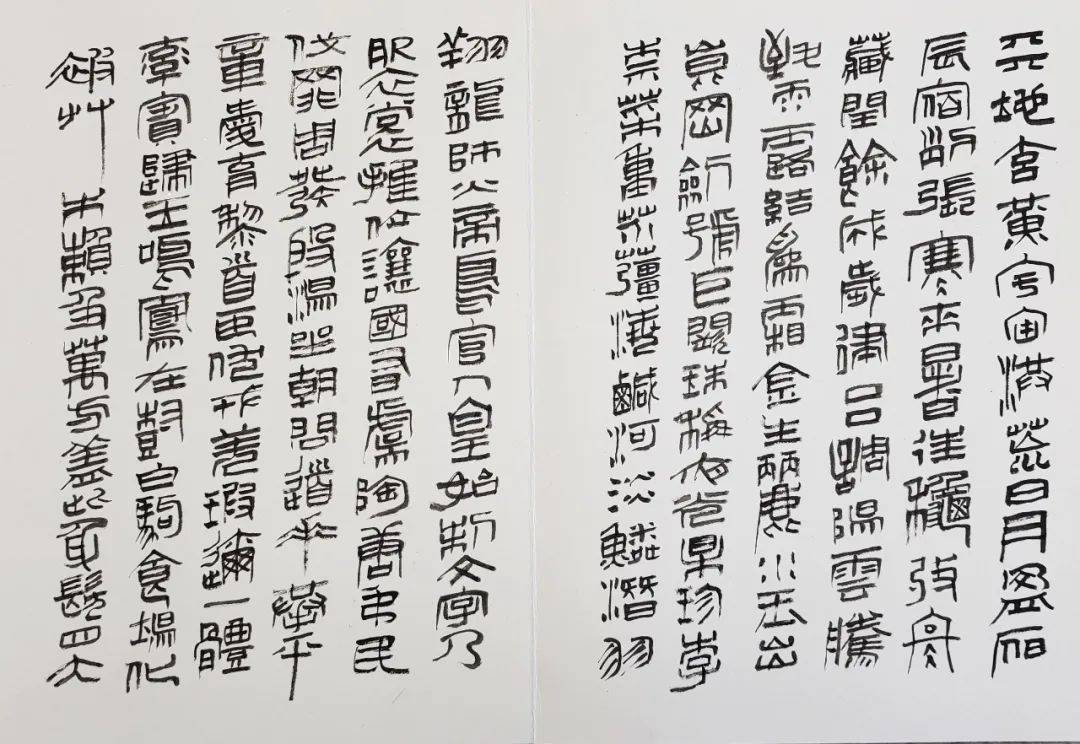 天地玄黃宇宙洪荒日月盈昃
辰宿列張寒來暑往龝收冬
藏閏餘成歲律呂調陽雲騰
致雨露結為霜金生麗水玉出
崑岡劍號巨闕珠稱夜光果珍李
柰菜重芥薑海鹹河淡鱗潛羽
翔龍師火帝鳥官人皇始制文字乃
服衣裳推位讓國有虞陶唐弔民
伐罪周發殷湯坐朝問道垂拱平
章愛育黎首臣伏戎羌遐邇一體
率賓歸王鳴鳳在樹白駒食場化
被草木賴及萬方蓋此身髮四大